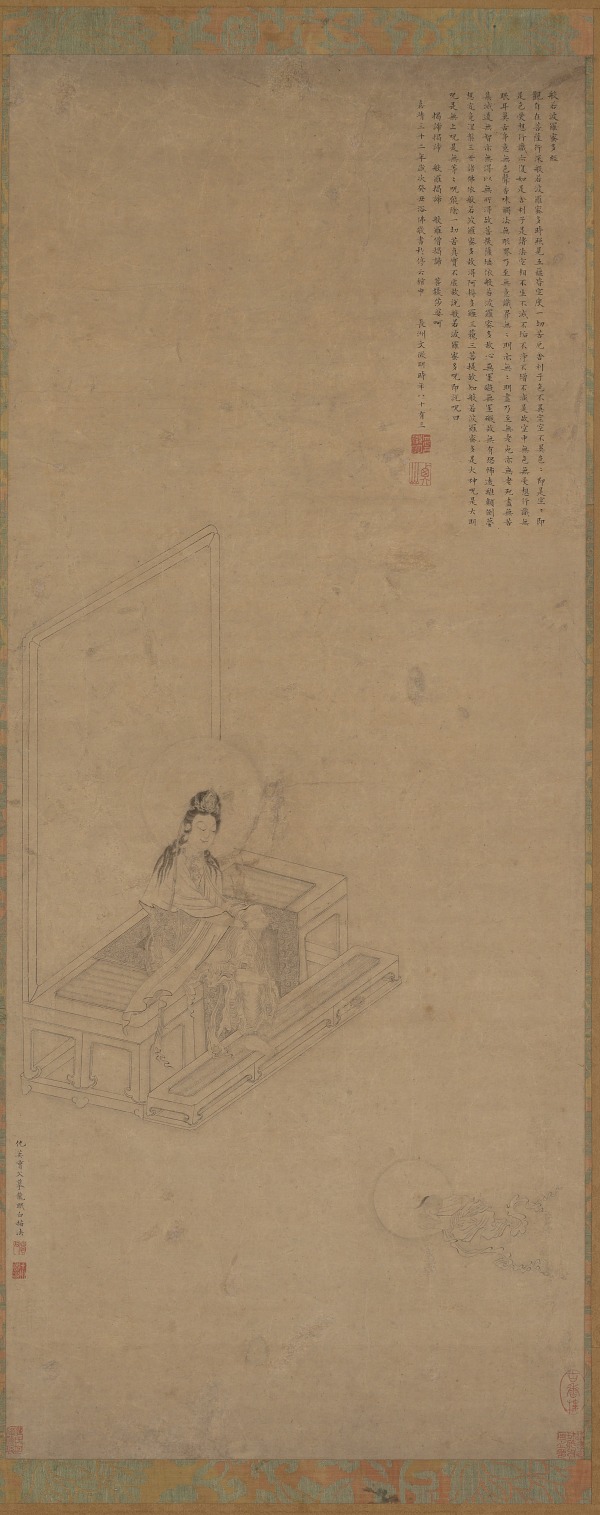 般若波羅蜜多經
觀自在菩薩行深般若波羅蜜多時照見五蘊皆空度一切苦厄舍利子色不異空空不異色〻即是空〻即
是色受想行識亦復如是舍利子是諸法空相不生不滅不垢不淨不增不減是故空中無色無受想行識無
眼耳鼻舌身意無色聲香味觸法無眼界乃至無意識界無〻明亦無〻明盡乃至無老死亦無老死盡無苦
集滅道無智亦無得以無所得故菩提薩埵依般若波羅蜜多故心無罣礙無罣礙故無有恐怖遠離顛倒夢
想究竟涅槃三世諸佛依般若波羅蜜多故得阿耨多羅三藐三菩提故知般若波羅蜜多是大神呪是大明
呪是無上呪是無等〻呪能除一切苦真實不虛故說般若波羅蜜多呪即說呪曰
揭諦揭諦 般羅揭諦 般羅僧揭諦 菩提莎婆呵
嘉靖三十二年歲次癸丑浴佛敬書於停云館中 長洲文徵明時年八十有三
仇英實父摹龍眠白描法